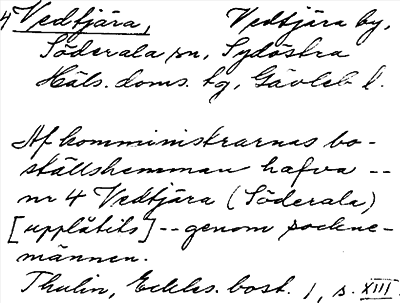 4 Vedtjära, Vedtjära by,
Söderala sn, Sydöstra
Häls. doms. tg, Gävleb. l.
Af komministrarnas bo-
ställshemman hafva --
nr 4 Vedtjära (Söderala)
[upplåtits] -- genom sockne-
männen.
Thulin, Eckles. bost. 1, s. XIII.